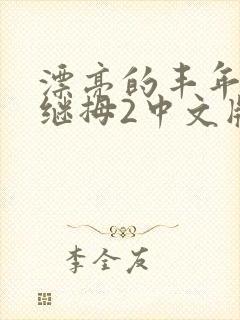 漂亮的丰年
继拇2中文版
李全友